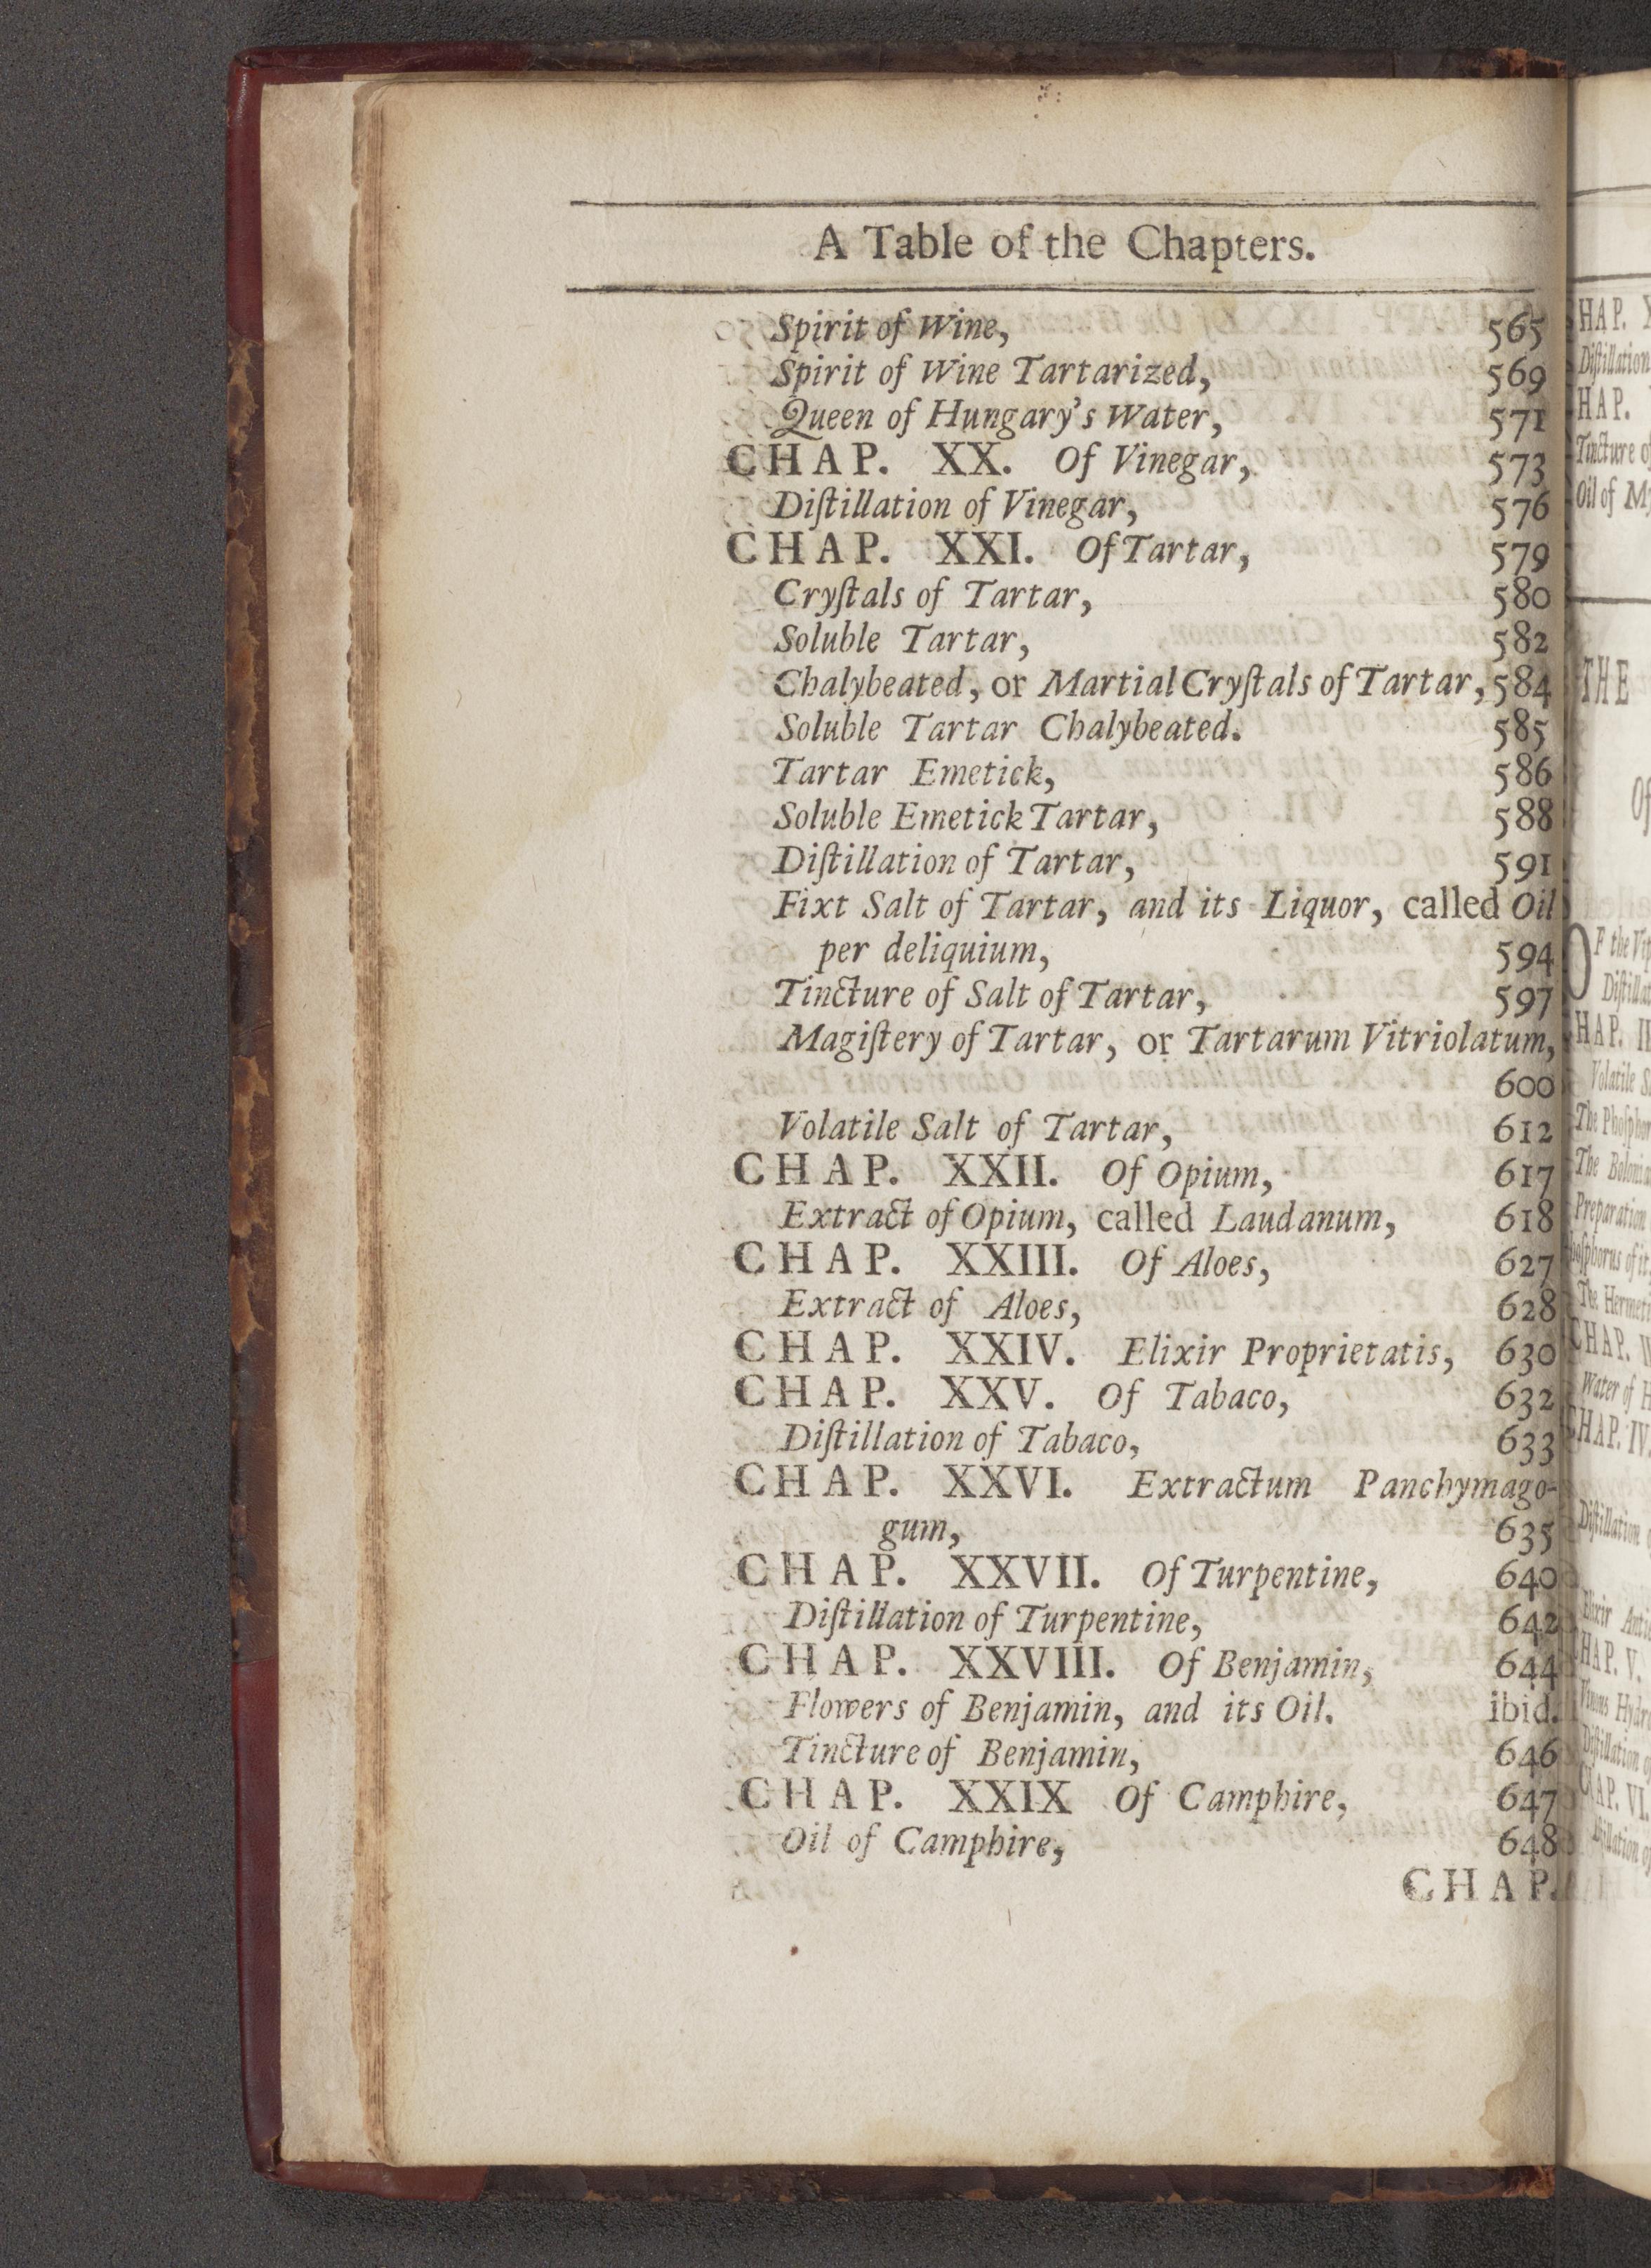 A Table of the Chapters.
Spirit of Wine, 565
Spirit of Wine Tartarized, 569
Queen of Hungary's Water, 571
CHAP. XX. Of Vinegar, 573
Diſtillation of Vinegar, 576
CHAP. XXI. Of Tartar, 579
Cryſtals of Tartar, 580
Soluble Tartar, 582
Chalybeated, or Martial Cryſtals of Tartar, 584
Soluble Tartar Chalybeated. 585
Tartar Emetick, 586
Soluble Emetick Tartar, 588
Diſtillation of Tartar, 591
Fixt Salt of Tartar, and its Liquor, called Oil
per deliquium, 594
Tincture of Salt of Tartar, 597
Magiſtery of Tartar, or Tartarum Vitriolatum,
600
Volatile Salt of Tartar, 612
CHAP. XXII. Of Opium, 617
Extract of Opium, called Laudanum, 618
CHAP. XXIII. Of Aloes, 627
Extract of Aloes, 628
CHAP. XXIV. Elixir Proprietatis, 630
CHAP. XXV. Of Tabaco, 632
Diſtillation of Tabaco, 633
CHAP. XXVI. Extractum Panchymago-
gum, 635
CHAP. XXVII. Of Turpentine, 640
Diſtillation of Turpentine, 642
CHAP. XXVIII. Of Benjamin, 644
Flowers of Benjamin, and its Oil. ibid.
Tincture of Benjamin, 646
CHAP. XXIX Of Camphire, 647
Oil of Camphire, 648
CHAP.
HAP.
Diſtillation
HAP.
Tincture of
Oil of
THE
Of
OF the
HAP.
Volatile
The
The
Preparation
The
CHAP.
Water of
HAP. IV.
Diſtillation
HAP. V.